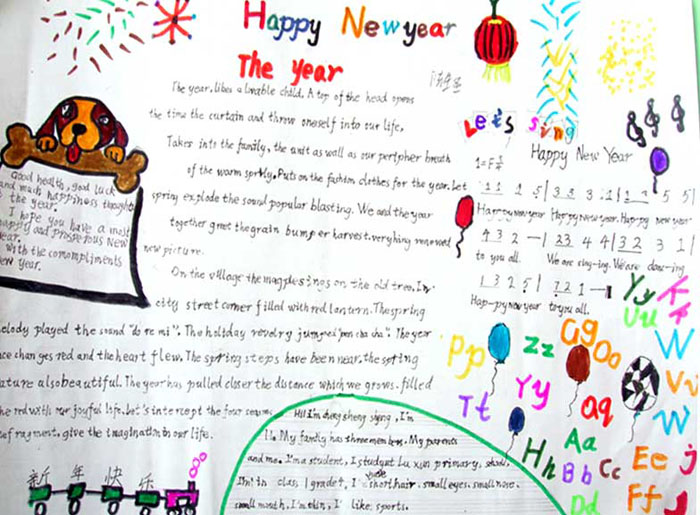 Happy New year
The Year
The year, likes a lovable child, A top of the head opens
the time the curtain and throw oneself into our life,
Takes into the family, the unit as well as our peripher breath
of the warm sprky. Puts on the fashion clothes for the year. Let
spring explode the sound popular blasting. We and the year
together great the grain bumper harvest. very hing renewed
new picture.
On the village the magpie sings on the old tree. In
city street corner filled with red lantern. The spring
elody played the sound "do re mi". The holiday revelry jumped "pen cha cha". The year
ce changes red and the heart flew. The spring steps have been near, the spring
ature also beautiful. The year has pulled closer the distance which we grows. filled
he red with our joyful life. Let's intercept the four seasons
fragment, give the imagination in our life.
Good health, good luck
and much happiness throughout
the year.
I hope you have a most
happy and prosperous New
Year.
With the compompliments
New year.
Let's sing
Happy New Year
1=F 3/4
1 1 1 5 | 3 3 3 1 | 1 3 5 5 |
Happy new year Happy new year. Happy new year
4 3 2 — | 2 3 4 4 | 3 2 3 1 |
to you all. We are sing-ing. We are danc-ing
1 3 2 5 | 7 2 1 — |
Hap-py new year to you all.
Yy
Uu
Pp
Zz
Gg
Oo
W
Tt
Yy
Qq
Vv
W
Hh
Aa
Bb
Cc
Dd
Ee
Ff
J
Hi! I'm sheng sheng, I'm
11. My family has three members. My parents
and me. I'm a student, I study at Lu xun primary, school,
I'm in class 1 grade 1, I have short hair. small eyes. small nose.
small mouth, I'm thin, I like sports.
新年快乐